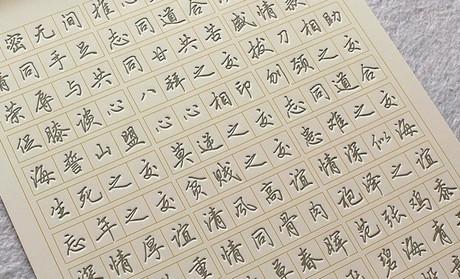 密无间 推心
情同手足 志同道合
荣辱与共 同甘共苦 盛情款
促膝谈心 八拜之交 拔刀相助
海誓山盟 心心相印 刎颈之交
生死之交 莫逆之交 志同道合
忘年之交 贫贱之交 患难之交
深情厚谊 清风高谊 情深似海
重 情同骨肉 袍泽之谊
春晖 张鸡黍
碧海青